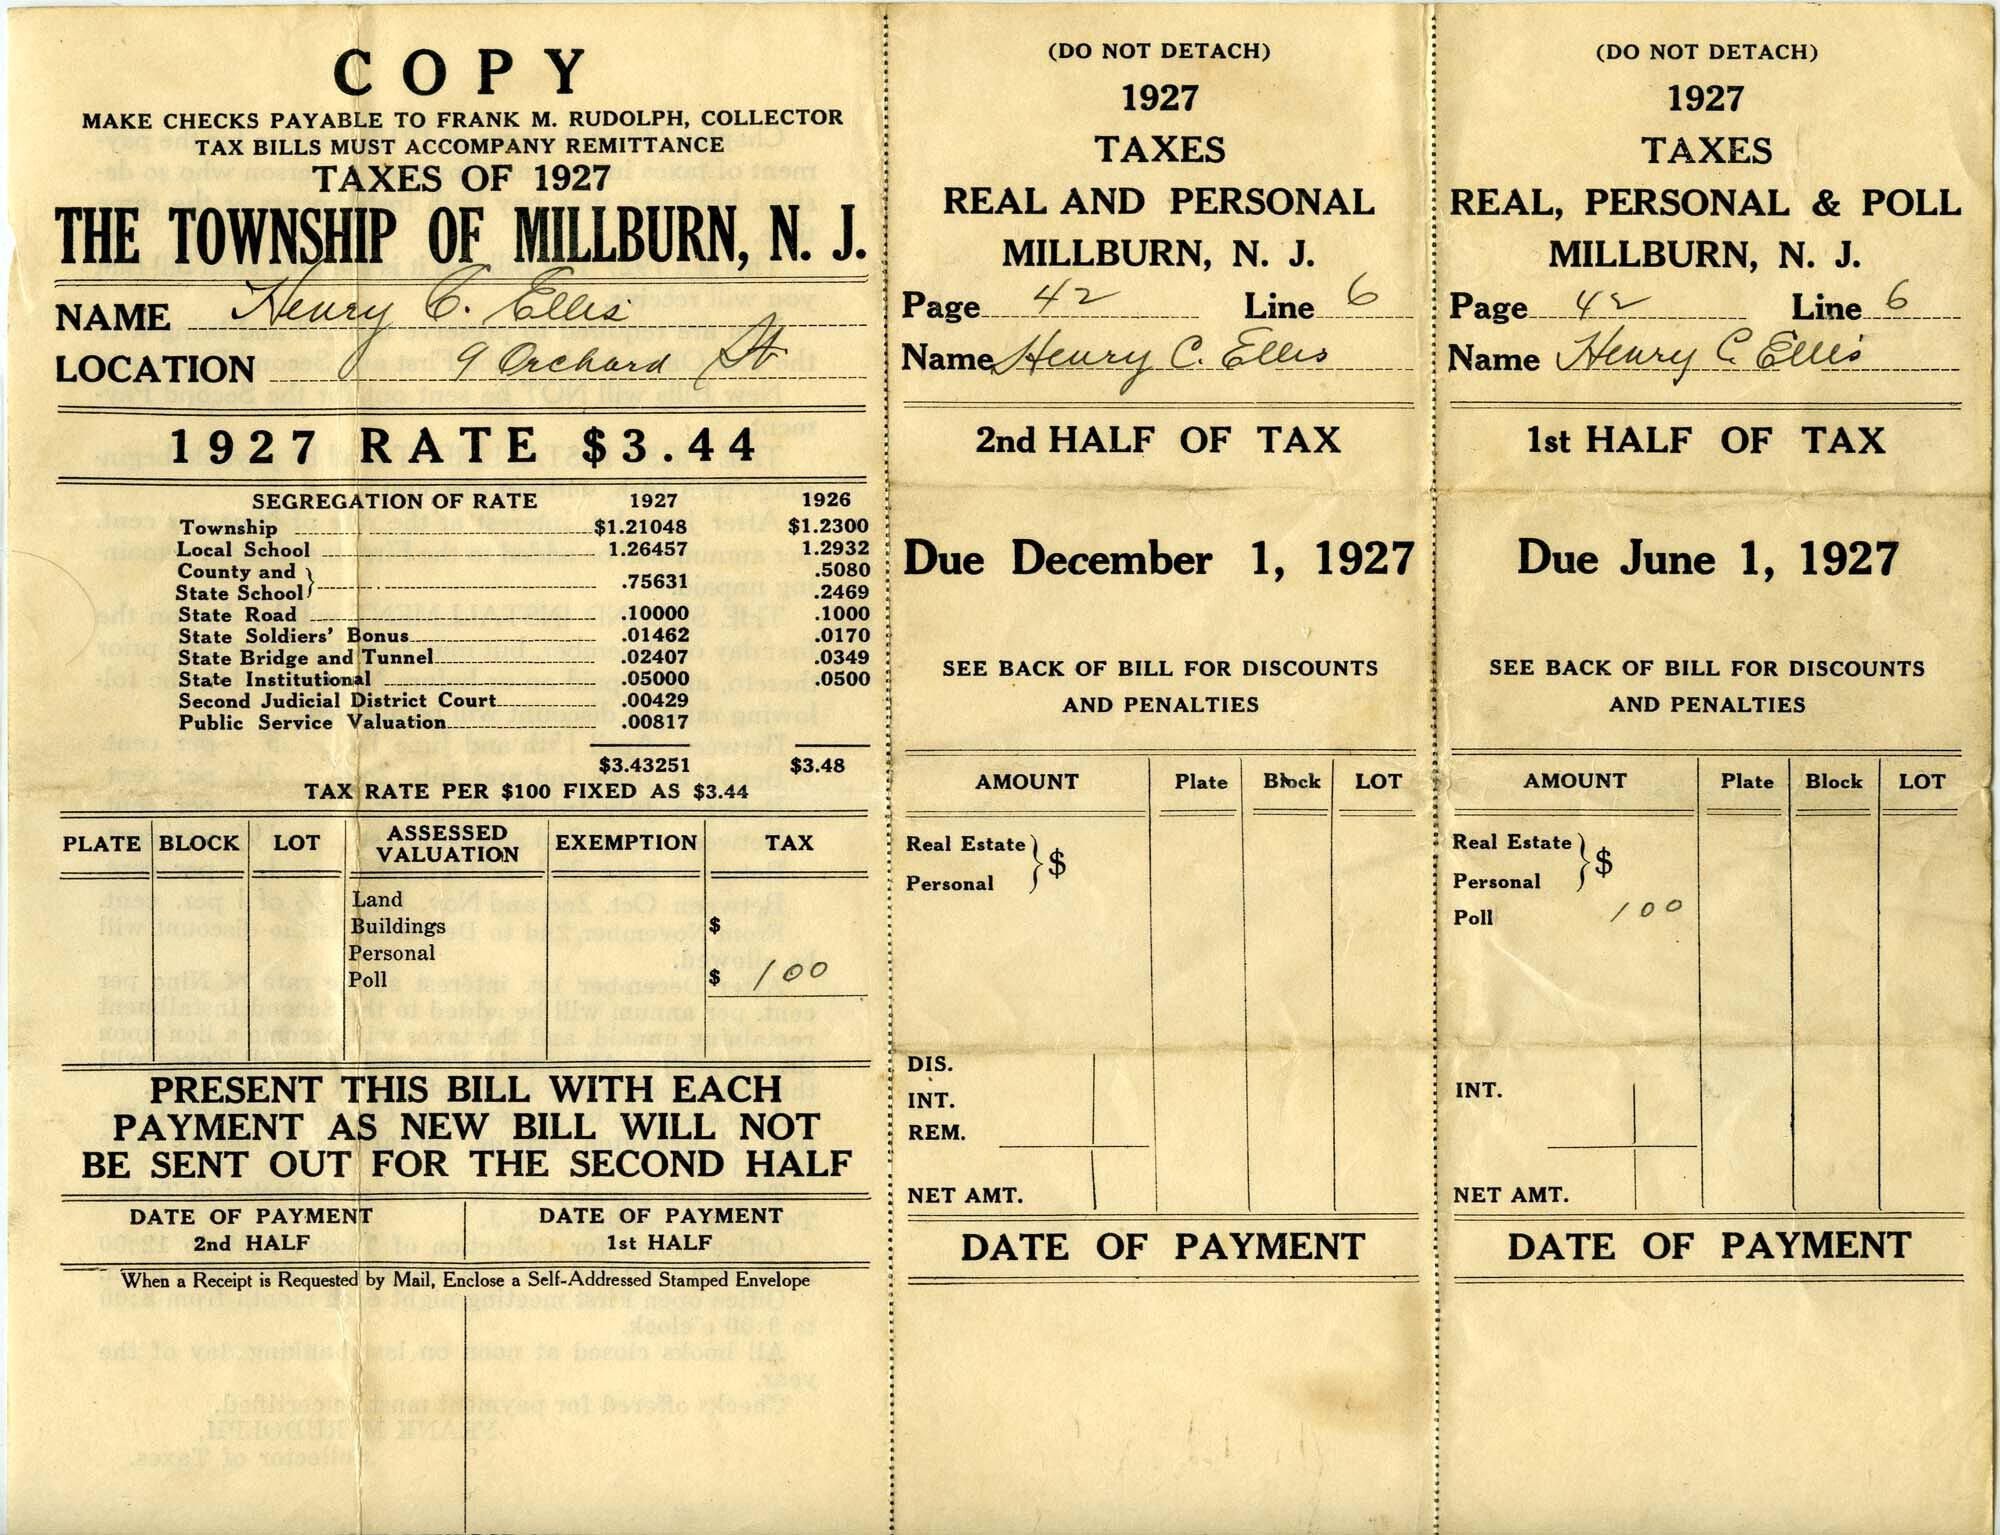 COPY
MAKE CHECKS PAYABLE TO FRANK M. RUDOLPH, COLLECTOR
TAX BILLS MUST ACCOMPANY REMITTANCE
TAXES OF 1927
THE TOWNSHIP OF MILLBURN, N. J.
NAME Henry C. Ellis
LOCATION 9 Orchard St
1927 RATE $3.44
SEGREGATION OF RATE 1927 1926
Township $1.21048 $1.2300
Local School 1.26457 1.2932
County and .5080
.75631
State School .2469
State Road .10000 .1000
State Soldiers' Bonus .01462 .0170
State Bridge and Tunnel .02407 .0349
State Institutional .05000 .0500
Second Judicial District Court .00429
Public Service Valuation .00817
$3.43251 $3.48
TAX RATE PER $100 FIXED AS $3.44
PLATE BLOCK LOT ASSESSED VALUATION EXEMPTION TAX
Land
Buildings $
Personal
Poll $ 100
PRESENT THIS BILL WITH EACH
PAYMENT AS NEW BILL WILL NOT
BE SENT OUT FOR THE SECOND HALF
DATE OF PAYMENT DATE OF PAYMENT
2nd HALF 1st HALF
When a Receipt is Requested by Mail, Enclose a Self-Addressed Stamped Envelope
(DO NOT DETACH)
1927
TAXES
REAL AND PERSONAL
MILLBURN, N. J.
Page 42 Line 6
Name Henry C. Ellis
2nd HALF OF TAX
Due December 1, 1927
SEE BACK OF BILL FOR DISCOUNTS
AND PENALTIES
AMOUNT Plate Block LOT
Real Estate
$
Personal
DIS.
INT.
REM.
NET AMT.
DATE OF PAYMENT
(DO NOT DETACH)
1927
TAXES
REAL, PERSONAL & POLL
MILLBURN, N. J.
Page 42 Line 6
Name Henry C. Ellis
1st HALF OF TAX
Due June 1, 1927
SEE BACK OF BILL FOR DISCOUNTS
AND PENALTIES
AMOUNT Plate Block LOT
Real Estate
$
Personal
Poll 100
INT.
NET AMT.
DATE OF PAYMENT